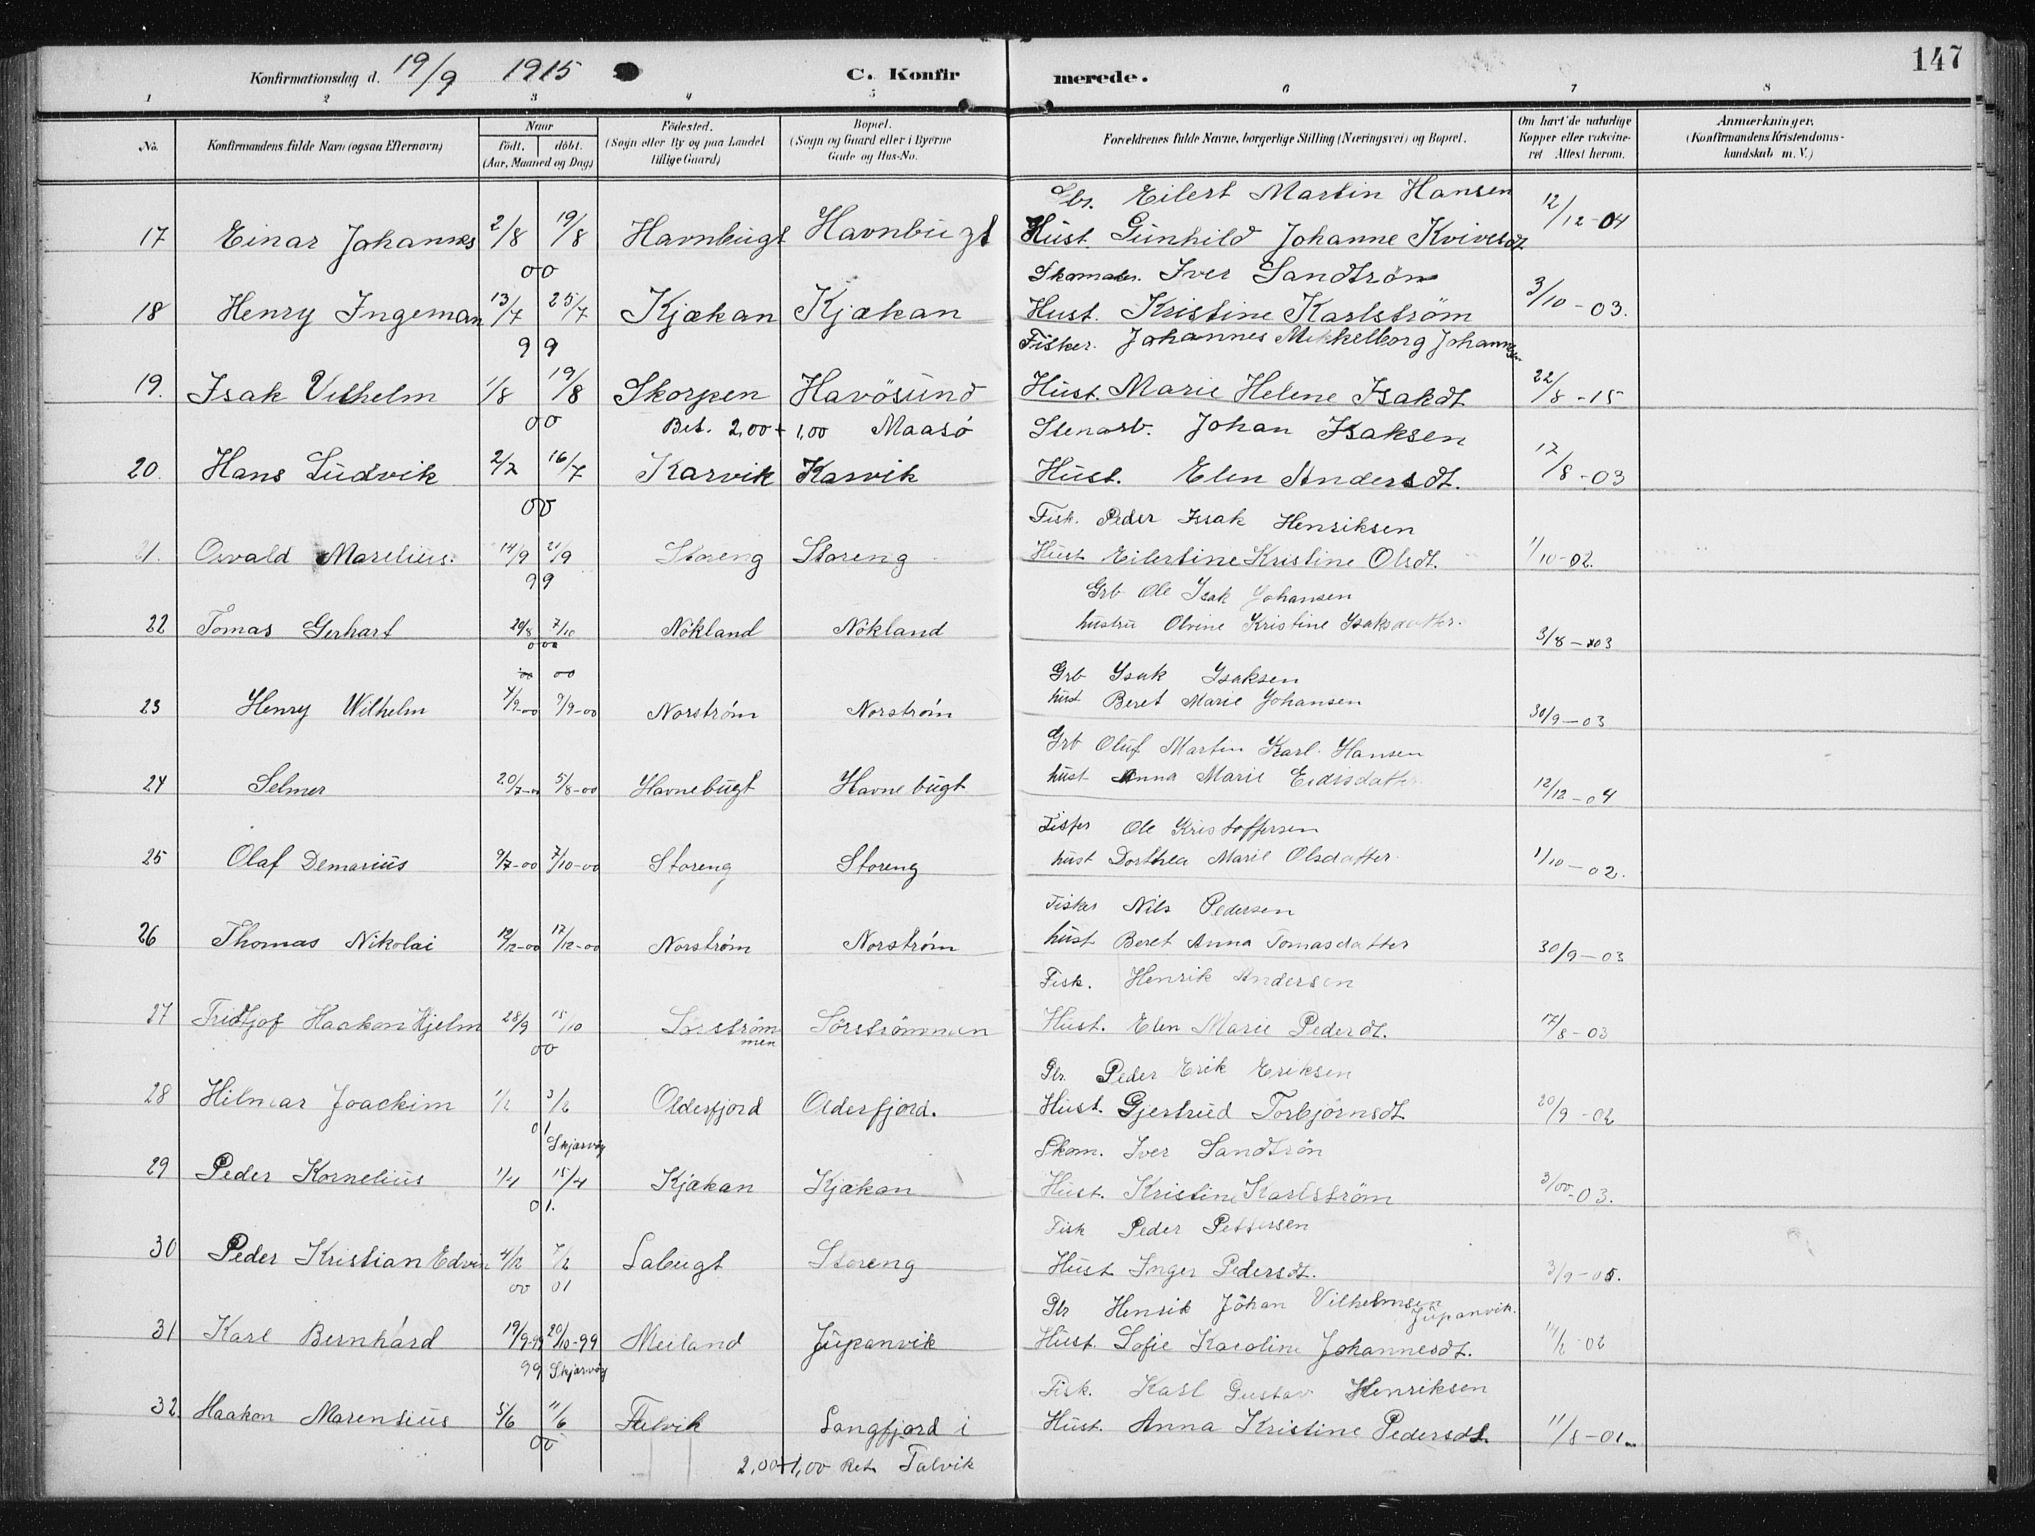 147
Konfirmationsdag d. 19/9 1915 C. Konfirmerede.
1 2 3 4 5 6 7 8
No. Konfirmandens fulde Navn (ogsaa Efternavn) Naar født. døbt. (Aar, Maaned og Dag) Fødested. (Sogn eller By og paa Landet tillige Gaard) Bopæl. (Sogn og Gaard eller i Byerne Gade og Hus-No. Forældrenes fulde Navne, borgerlige Stilling (Næringsvei) og Bopæl. Om havt de naturlige Kopper eller vakcineret Attest herom. Anmærkninger. (Konfirmandens Kristendomskundskab m. V.)
Eilert Martin Hansen
17 Einar Johannes 2/8 19/8 Havnbugt Havnbugt Hust. Gunhild Johanne Kvivesdt 12/12-04
00 Skomaker. Iver Sandtrøn
18 Henry Ingeman 13/7 25/7 Kjækan Kjækan Hust. Kristine Karlstrøm 3/10-03.
99 Fisker. Johannes Mikkelborg Johannessen
19. Isak Vilhelm 1/8 19/8 Skorpen Havösund Hust. Marie Helene Isakdt 22/8-15
00 Bet. 2,00 + 1,00 Maasø Stenarb. Johan Isaksen
20. Hans Ludvik 2/7 16/7 Karvik Karvik Hust. Elen Andersdt. 17/8-03
00 Fisk. Peder Issak Henriksen
21. Osvald Marelius. 14/9 21/9 Storeng Storeng Hust Eilertine Kristine Olsdt. 1/10-02.
99 Grb Ole Isak Johansen
22 Tomas Gerhart 20/8 7/10 Nökland Nökland hustru Olvine Kristine Isaksdatter. 3/8-03
00 00 Grb Ysak Ysaksen
23 Henry Wilhelm 4/9-00 9/9-00 Norstrøm Norstrøm hust Beret Marie Johansen 30/9-03
Grb Oluf Martin Karl Hansen
24 Selmer 20/7-00 5/8-00 Havnebugt Havnebugt hust Anna Marie 12/12-04
Fisker Ole Kristoffersen
25 Olaf Demarius 9/7-00 7/10-00 Storeng Storeng hust Dorthea Marie Olsdatter 1/10-02.
Fisker Nils Pedersen
26 Thomas Nikolai 12/12-00 17/12-00 Norstrøm Norstrøm hust Beret Anna Tomasdatter 30/9-03
Fisk. Henrik Andersen
27 Fridtjof Haakon Hjelm 28/9 15/10 Sørstrømmen Sörstrømmen Hust. Elen Marie Pederdt. 17/8-03
00 Peder Erik Eriksen
28 Hilmar Joachim 1/2 3/2 Olderfjord Olderfjord. Hust. Gjertrud Torbjørnsdt 20/9-02
01 Skjærvøy Skom. Iver Sandtrøn
29 Peder Kornelius 1/4 15/4 Kjækan Kjækan Hust. Kristine Karlstrøm 3/00-03.
01. Fisk Peder Pettersen
30 Peder Kristian Edvin 4/2 7/2 Labugt Storeng Hust Inger Pedersdt. 3/9-05.
00 01 Henrik Johan Vilhelmsen Jupanvik.
31 Karl Bernhard 19/9-99 20/10-99 Meiland Jupanvik Hust. Sofie Karoline Johannesdt. 11/2-02
99 Skjærvøy Fisk. Karl Gustav Henriksen
32. Haakon Marensius 5/6 11/6 Talvik Langfjord i Hust. Anna Kristine Pedersdt. 11/8-01
00 2,00+1,00 Bet. Talvik